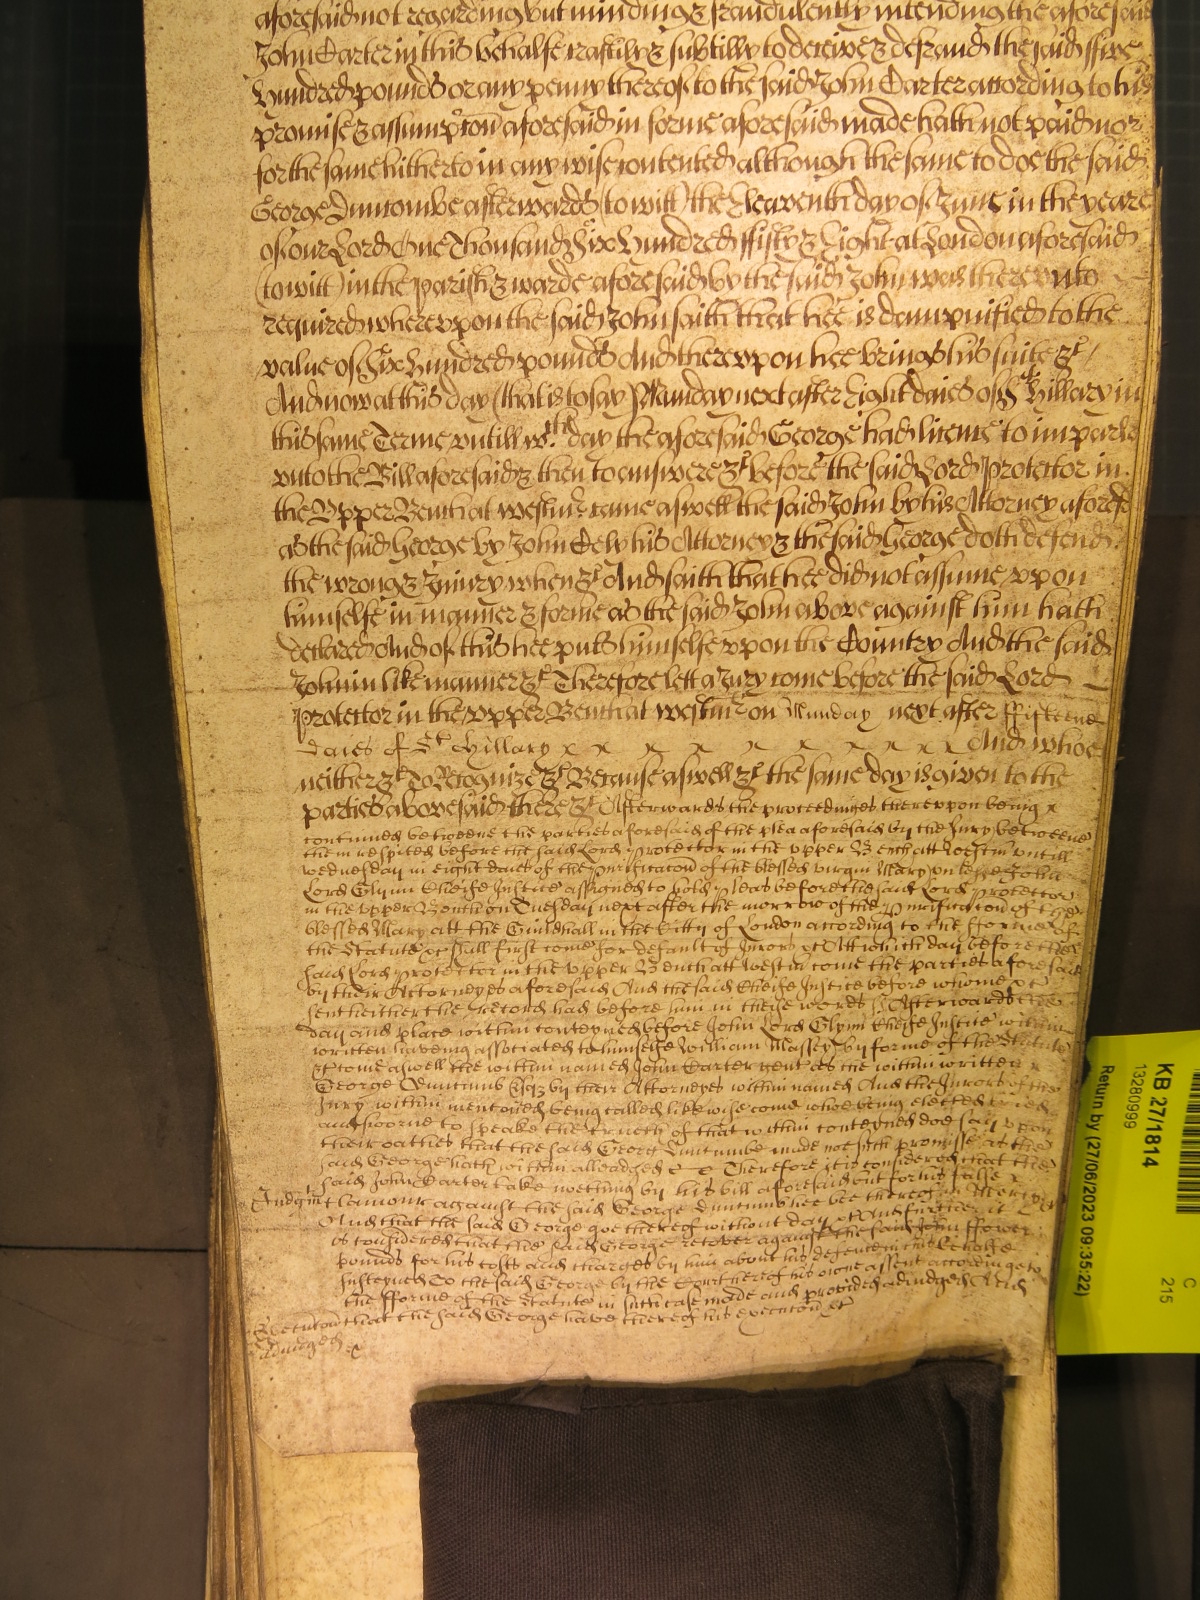 aforesaid not regarding but minding & fraudulently intending the aforesaid
John Carter in this behalfe craftily & subtilly to deceive & defraud the said ffive
Hundred pounds or any penny thereof to the said John Carter according to his
promise & assumpcon aforesaid in forme aforesaid made hath not paid nor
for the same hitherto in any wise contented although the same to doe the said
George Duncombe afterwards (to witt) the Eleaventh day of June in the yeare
of our Lord One Thousand Six Hundred ffifty & Eight at London aforesaid
(to witt) in the parish & warde aforesaid by the said John was thereunto
required whereupon the said John saith that hee is dampnified to the
value of Six Hundred pounds And thereupon hee brings his suite &c /
And now at this day (that is to say) Munday next after Eight daies of St Hillary in
this same Terme untill wch day the aforesaid George had licence to imparle
unto the Bill aforesaid & then to answere &c before the said Lord Protector in
the Upper Bench at Westmr came aswell the said John by his Attorney aforesd
as the said George by John Cely his Attorney & the said George doth defend
the wrong & Injury when &c And saith that hee did not assume upon
himselfe in manner & forme as the said John above against him hath
declared And of this hee puts himselfe upon the Country And the said
John in like manner &c Therefore lett a Jury come before the said Lord
Protector in the upper Bench at Westmr on Munday next after ffifteene
daies of St Hillary x x x x x x x x x x And whoe
neither &c To Recognize &c Because aswell &c the same day is given to the
parties abovesaid there &c Afterwards the proceedings thereupon being x
continued betweene the parties aforesaid of the plea aforesaid by the Jury betweene
them respited before the said Lord Protector in the upper Bench att Westmr untill
wednesday in eight daies of the Purificacon of the blessed virgin Mary unlesse John
Lord Glynn Cheife Justice assigned to hold pleas before the said Lord Protector
in the upper Bench on Tuesday next after the morrow of the Purificacon of the
blessed Mary att the Guildhall in the Citty of London according to the fforme of
the Statute &c shall first come for default of Jurors &c Att which day before the
said Lord Protector in the upper Bench att Westmr come the parties aforesaid
by their Attorneyes aforesaid And the said Cheife Justice before whome &c
sent hether the record had before him in theise words Afterwards the
day and place within conteyned before John Lord Glynn Cheife Justice within
written haveing associated to himselfe William Massey by forme of the Statute
&c come aswell the within named John Carter gent as the within written
George Duncumb Esqr by their Attorneyes within named And the Jurors of the
Jury within mentoned being called likewise come whoe being elected tried
and sworne to speake the trueth of that within conteyned doe say upon
their oathes that the said George Duncumbe made noe such promisse as the
said George hath within alleadged &c Therefore it is considered that the
said John Carter take nothing by his bill aforesaid but for his false x
Judgmt clamour against the said George Duncumb hee bee thereof in Mercy &c
And that the said George goe thereof without day &c And further it
is considered that the said George recover against the said John ffower
pounds for his costs and charges by him about his defence in this behalfe
susteyned To the said George by the Court hereof his owne assent accordinge to
the fforme of the Statute in such case made and provided adiudged And
Execucon that the said George have thereof his execucon &c
adiudged &c
KB 27/1814
13280999
Return by (27/06/2023 09:35:22)
C
215